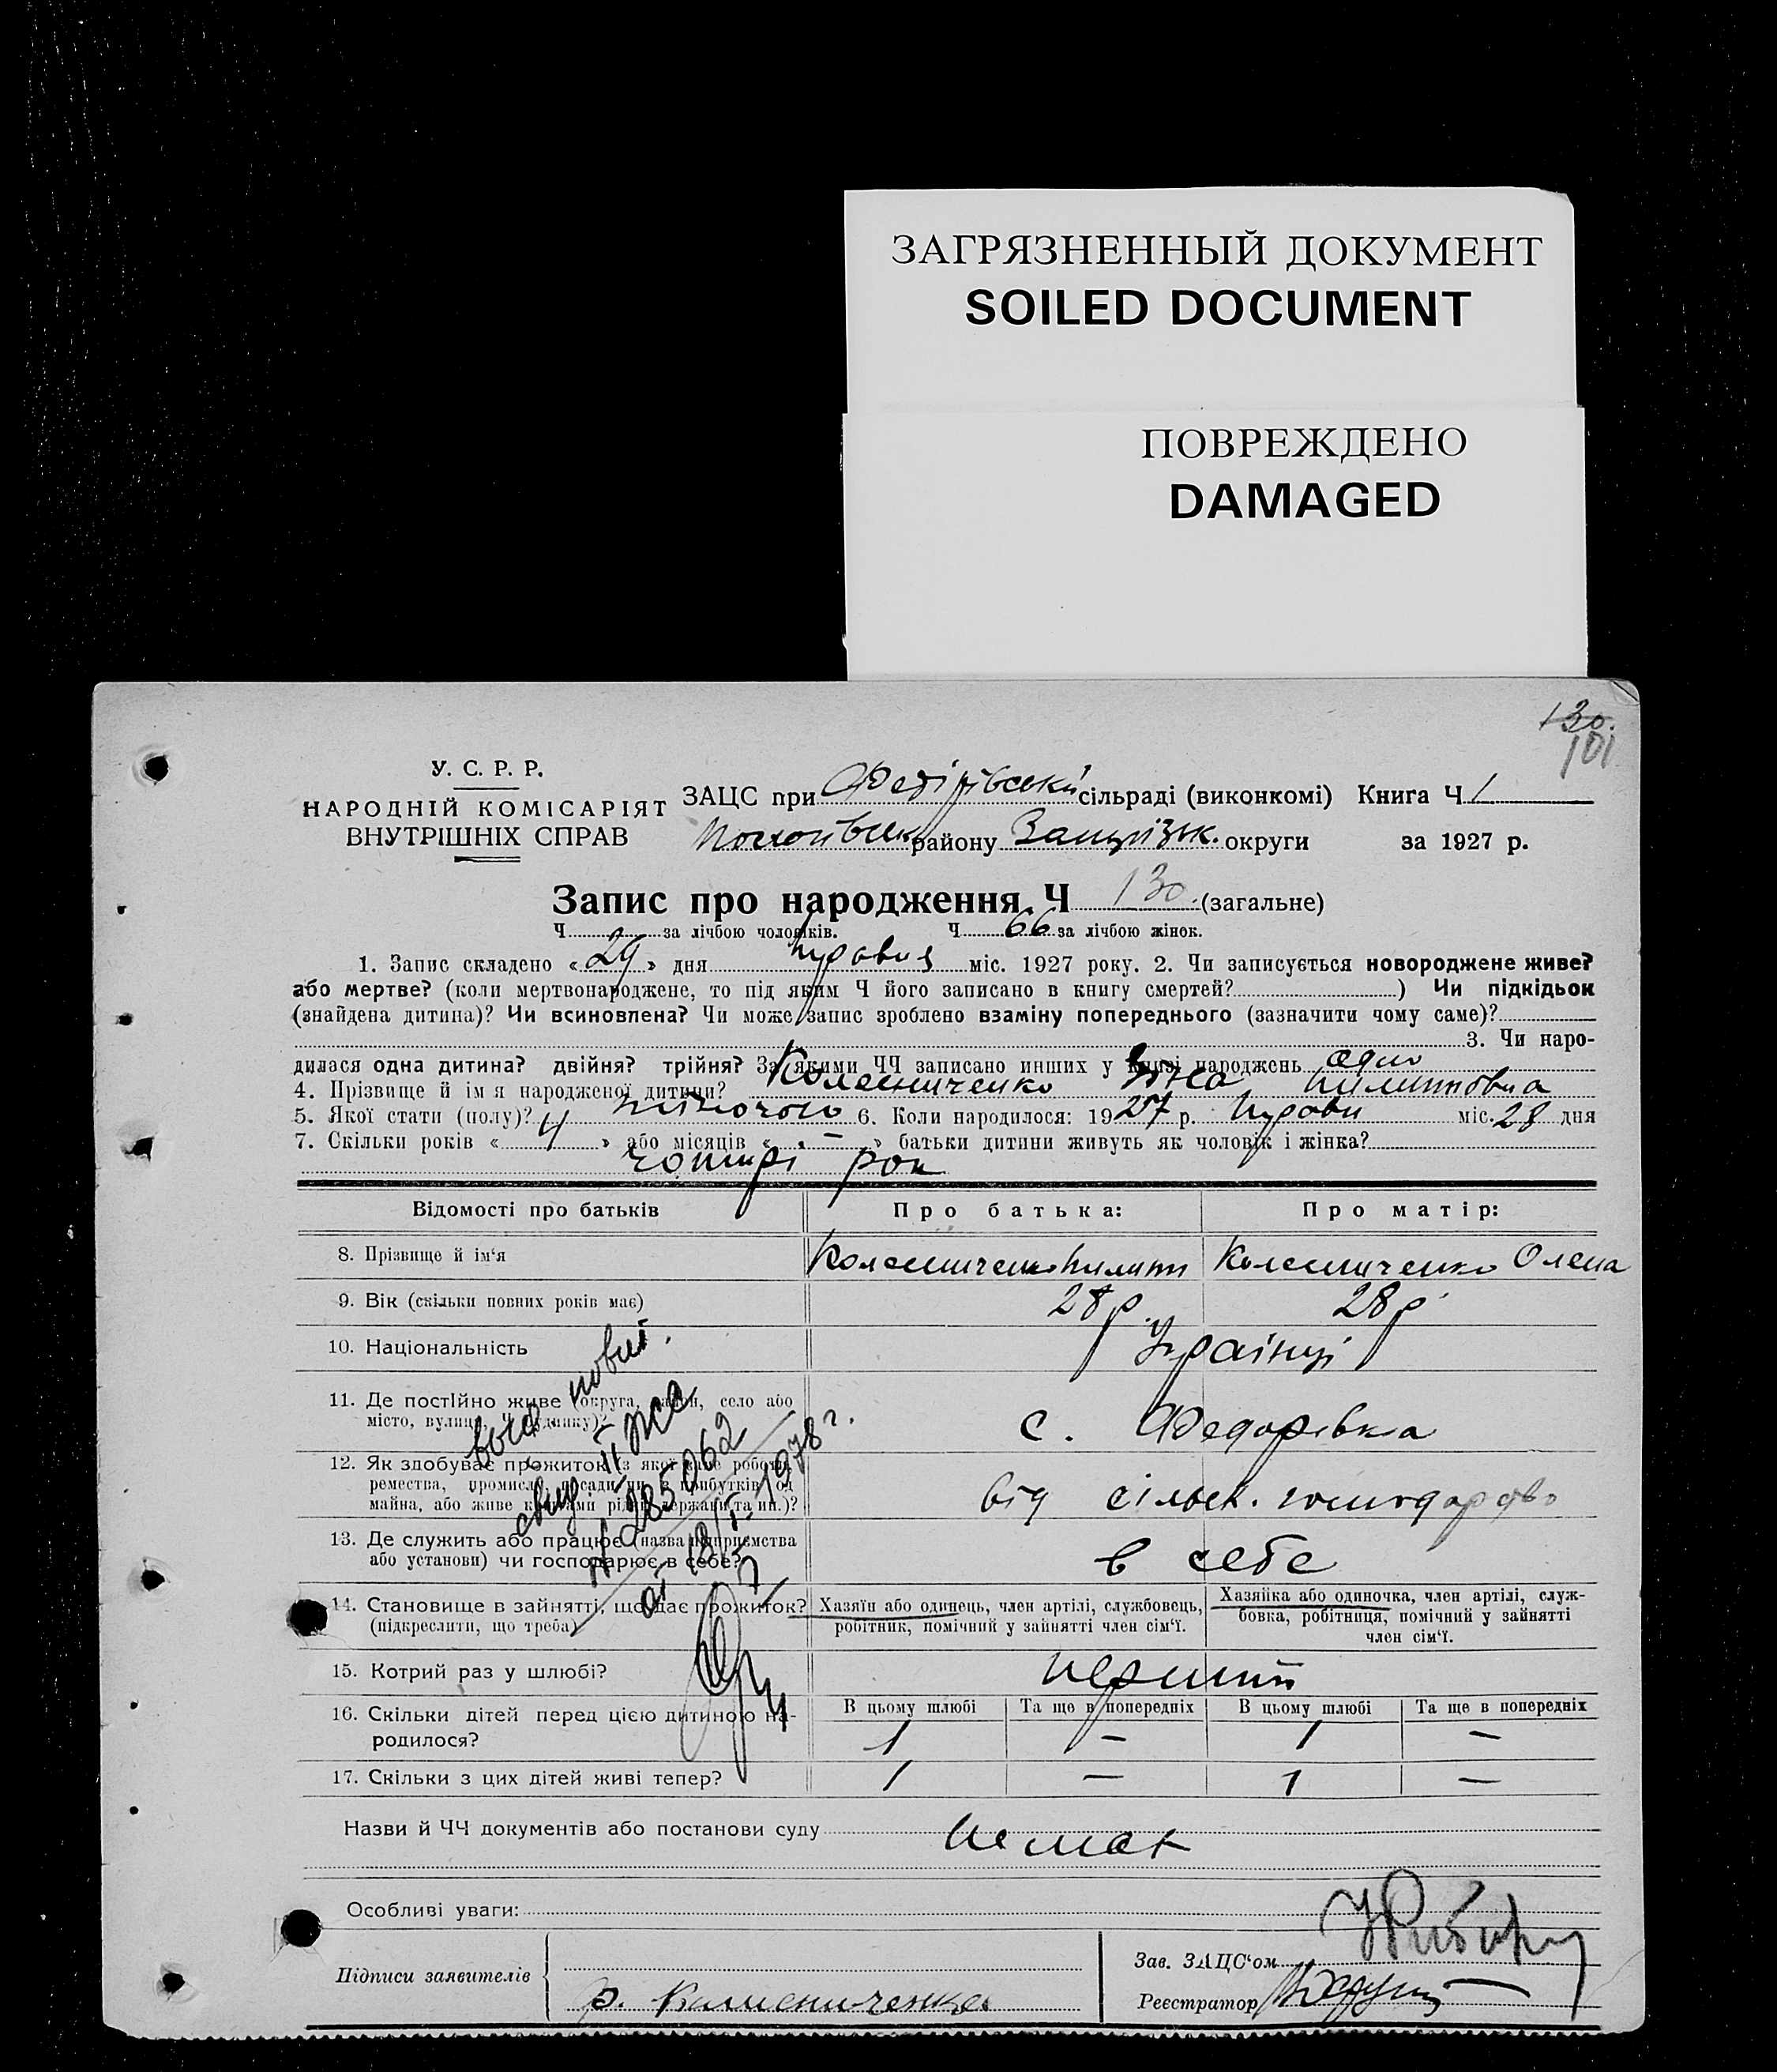 ЗАГРЯЗНЕННЫЙ ДОКУМЕНТ
SOILED DOCUMENT
ПОВРЕЖДЕНО
DAMAGED
130.
101
У. С. Р. Р.
НАРОДНІЙ КОМІСАРІЯТ
ВНУТРІШНІХ СПРАВ
ЗАЦС при Федірівській сільраді (виконкомі) Книга Ч 1
району Запоріжк. округи за 1927 р.
Запис про народження Ч 130. (загальне)
Ч за лічбою чоловіків. Ч 66 за лічбою жінок.
1. Запис складено «29» дня Червня міс. 1927 року. 2. Чи записується новороджене живе?
або мертве? (коли мертвонароджене, то під яким Ч його записано в книгу смертей? ) Чи підкідьок
(знайдена дитина)? Чи всиновлена? Чи може запис зроблено взаміну попереднього (зазначити чому саме)?
3. Чи наро-
дилася одна дитина? двійня? трійня? За якими ЧЧ записано инших у книзі народжень одно
4. Прізвище й ім я народженої дитини? Колесниченко Пилиповна
5. Якої стати (полу)? жіночого 6. Коли народилося: 1927 р. міс. 28 дня
7. Скільки років «4» або місяців «-» батьки дитини живуть як чоловік і жінка?
чотирі рок
Відомості про батьків Про батька: Про матір:
8. Прізвище й ім‘я Колесниченко Пилип Колесниченко Олена
9. Вік (скільки повних років має) 28 р. 28 р
10. Національність Українці
11. Де постійно живе (округа, район, село або
місто, вулиця й будинку)? с. Федорівка
12. Як здобуває прожиток (з якої саме роботи,
ремества, промислу, посади чи з прибутків од
майна, або живе коштами рідні, держави та ин.)? від сільск. господарство
13. Де служить або працює (назва підприємства
або установи) чи господарює в себе? в себе
14. Становище в зайнятті, що дає прожиток?
(підкреслити, що треба)
Хазяїн або одинець, член артілі, службовець,
робітник, помічний у зайнятті член сім‘ї.
Хазяйка або одиночка, член артілі, служ-
бовка, робітниця, помічний у зайнятті
член сім‘ї.
15. Котрий раз у шлюбі? перший
В цьому шлюбі Та ще в попередніх В цьому шлюбі Та ще в попередніх
16. Скільки дітей перед цією дитиною на-
родилося? 1 — 1 —
17. Скільки з цих дітей живі тепер? 1 — 1 —
№ 285062
от 18/I-1978 г.
Назви й ЧЧ документів або постанови суду немає
Особливі уваги:
Підписи заявителів
Зав. ЗАЦС‘ом
Реєстратор